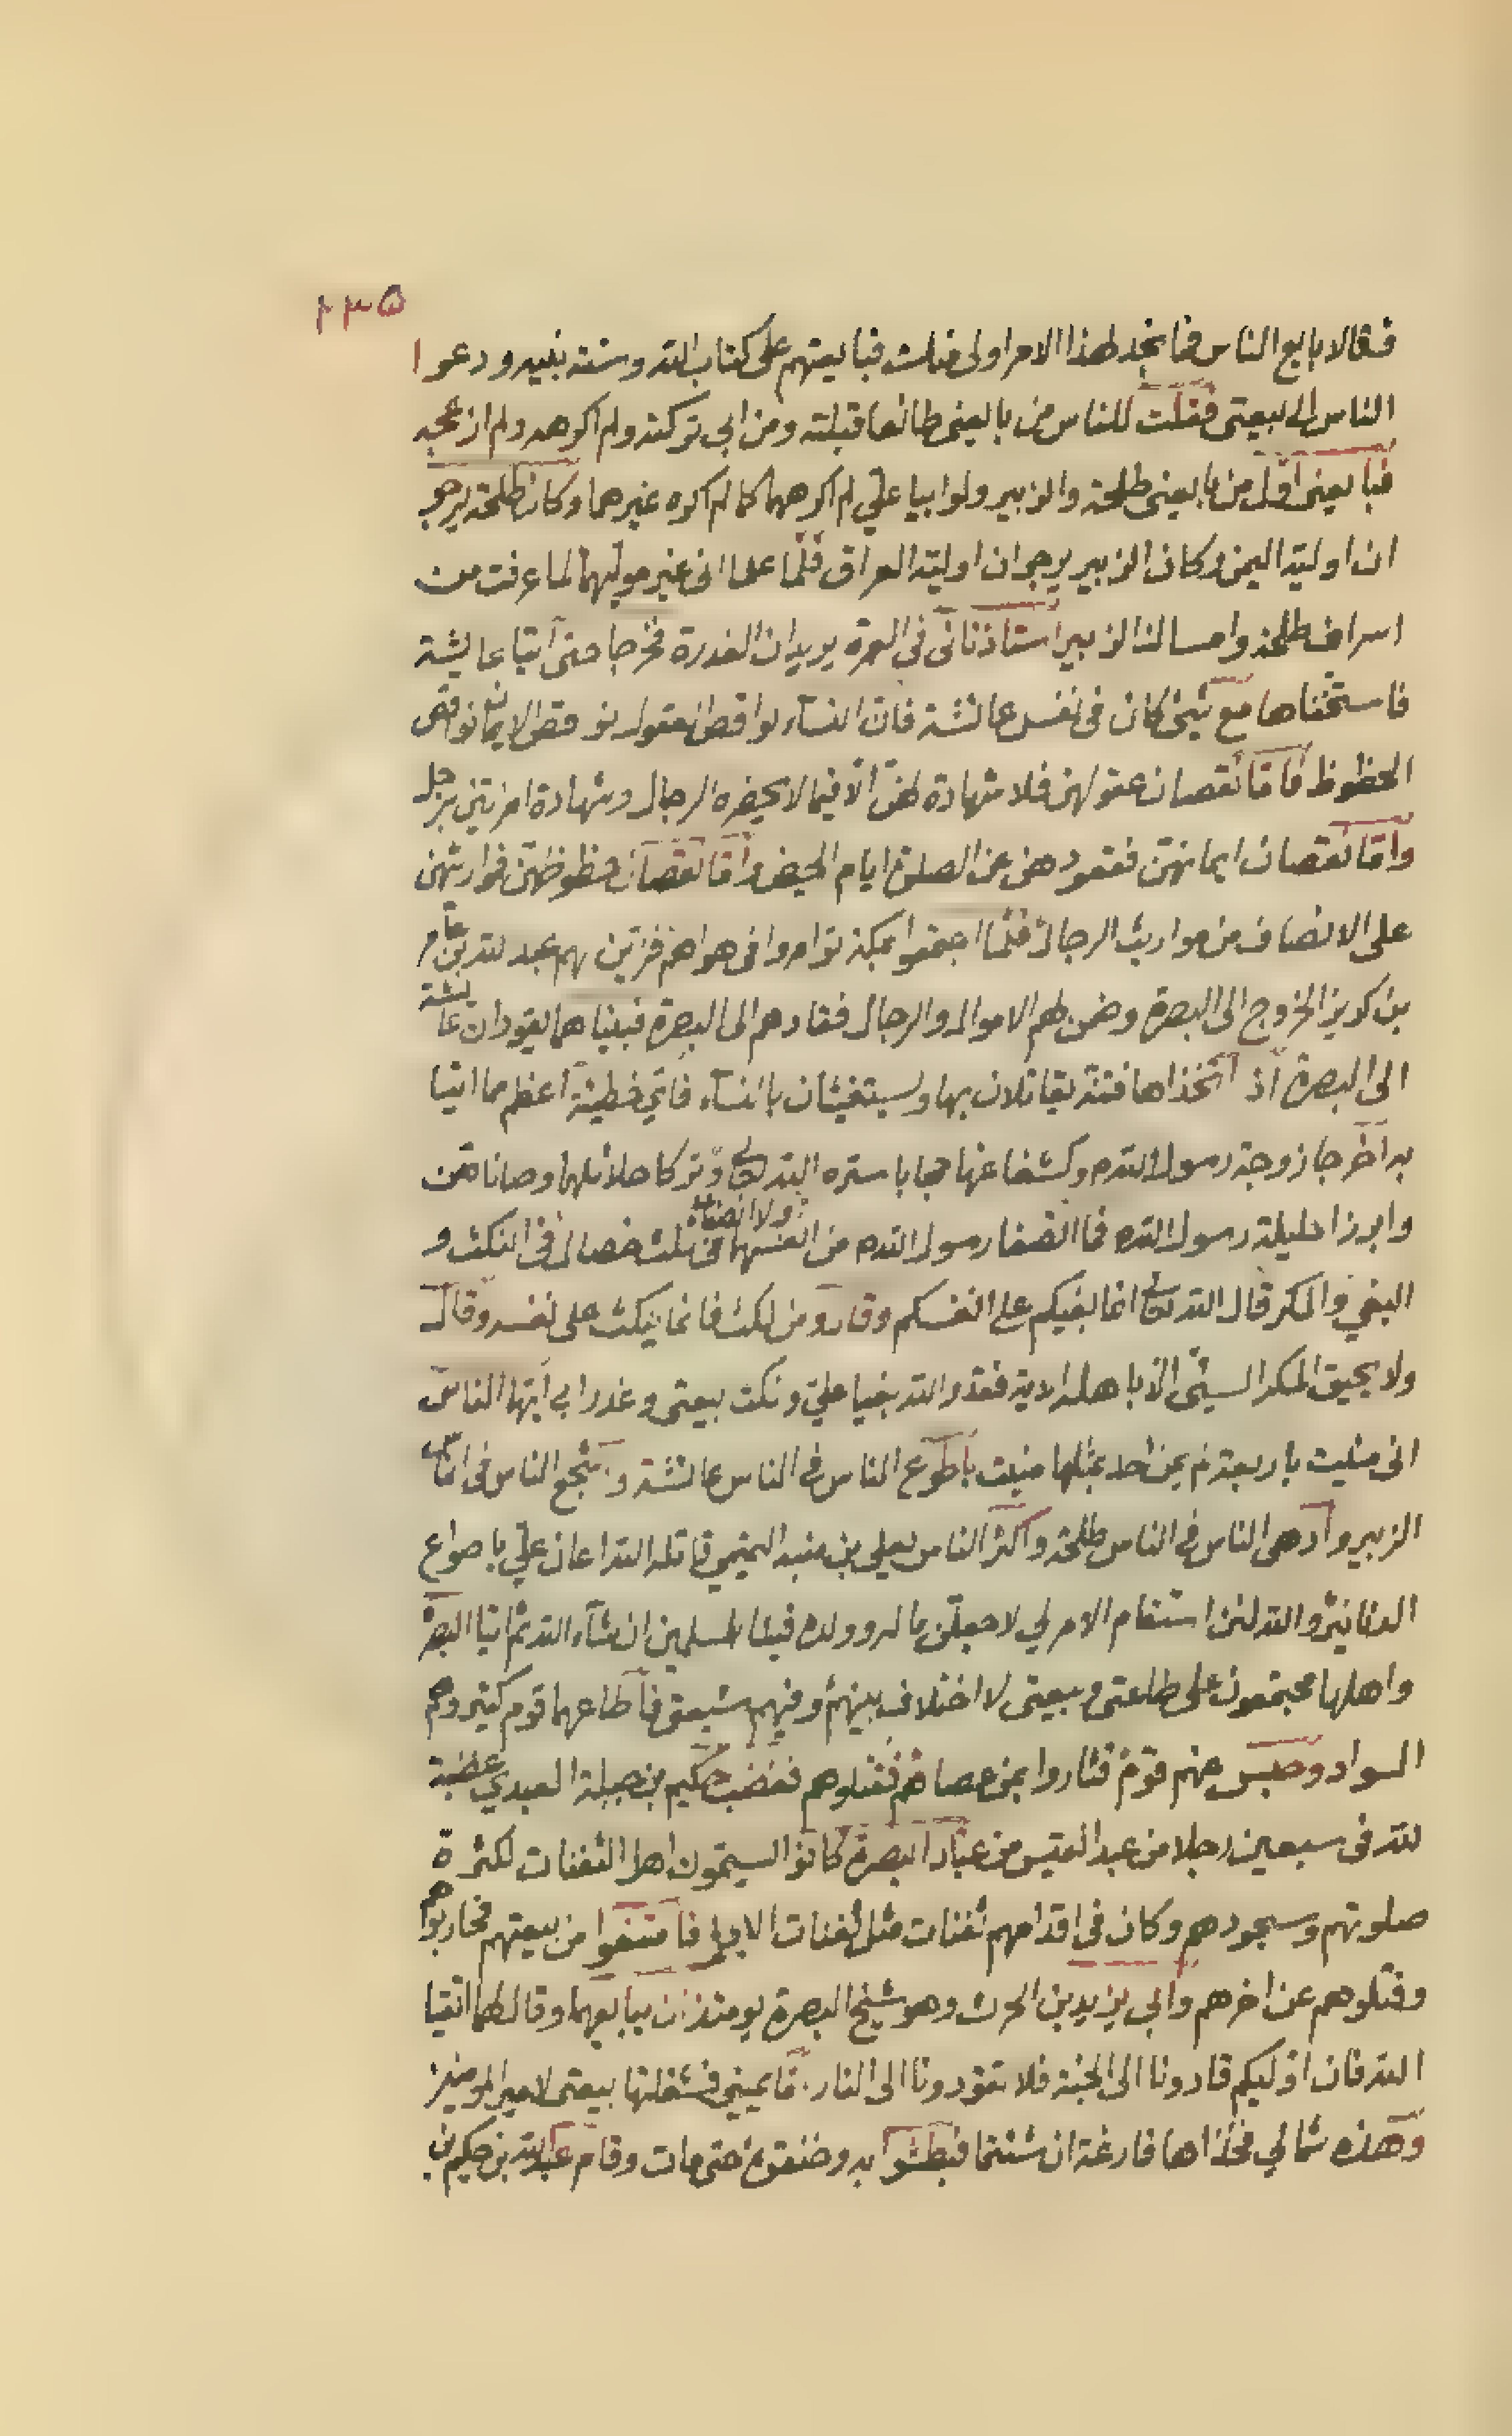 ١٣٥
فقالا بايع الناس فما نجد لهذا الامر اولى منك فبايعتهم على كتاب الله وسنة نبيه ودعوا
الناس الى بيعتى فقلت للناس من بايعنى طائعا قبلته ومن ابى تركته ولم اكرهه ولم
فبايعنى اول من بايعنى طلحة والزبير ولو ابيا علي لم اكرههما كما لم اكره غيرهما وكان طلحة يرجو
ان اوليه اليمن وكان الزبير يرجو ان اوليه العراق فلما علما انى غير موليهما لما عرفت من
اسراف طلحة وامساك الزبير استاذنانى فى العمرة يريدان الغدرة فخرجا حتى اتيا عايشة
فاستخفاها مع شيئ كان فى نفس عائشة فان النسآء نواقص العقول نواقص الايمان نواقص
الحظوظ فاما نقصان عقولهن فلا شهادة لهن الا فيما لا يحضره الرجال وشهادة امرئتين برجل
واما نقصان ايمانهن فقعودهن عن الصلوة ايام الحيض واما نقصان حظوظهن فمواريثهن
على الانصاف من مواريث الرجال فلما اجمعوا بمكة توامروا فى هواهم فزين لهم عبد لله بن عامر
بن كريز الخروج الى البصرة وضمن لهم الاموال والرجال فقادهم الى البصرة فبيناهما يقودان عايشة
الى البصرة اذ اتخذاها فئة يقاتلان بها ويستغيثان بالنسآء فاي خطيئة اعظم مما اتيا
به اخرجا زوجة رسول الله ص وكشفا عنها حجابا ستره الله تعالى وتركا حلائلهما وصاناهن
وابرزا حليلة رسول الله ص فما انصفا رسول الله ص من انفسهما ولا انصفا فى ثلث خصال فى النكث و
البغي والمكر قال الله تعالى انما بغيكم على انفسكم وقال ومن نكث فانما ينكث على نفسه وقال
ولا يحيق المكر السيئ الا باهله الاية فقد والله بغيا علي ونكث بيعتى وغدرا بي ايها الناس
انى منيت باربعة لم يمن احد بمثلها منيت باطوع الناس فى الناس عائشة وبشجع الناس فى الناس
الزبير وادهى الناس فى الناس طلحة واكثر الناس يعلى بن منبه التميمي قاتله الله اعان علي باصواع
الدنانير والله لئن استقام الامر لي لاجعلن ماله وولده فيئا للمسلمين ان شآء الله ثم اتيا البصرة
واهلها مجتمعون على طاعتى وبيعتى لا اختلاف بينهم وفيهم شيعتى فاطاعهما قوم كثير وهم
السواد وحبس منهم قوم فثاروا بمن عصاهم فقتلوهم فغضب حكيم بن جبلة العبدي غضبة
لله فى سبعين رجلا من عبد القيس من عباد البصرة كانوا يسمون اهل الثفنات لكثرة
صلوتهم وسجودهم وكان فى اقدامهم ثفنات مثل ثفنات الابل فامتنعوا من بيعتهم فحاربوهم
وقتلوهم عن اخرهم وابى يزيد بن الحرث وهو شيخ البصرة يومئذ ان يبايعهما وقال لهما اتقيا
الله فان اولكم قادونا الى الجنة فلا تقودونا الى النار. اما يمينى فشغلتها بيعتى لامير المومنين
وهذه شمالي فخذاها فارغة ان شئتما فبطشوا به وخنقوه حتى مات وقام عبد الله بن حكيم بن